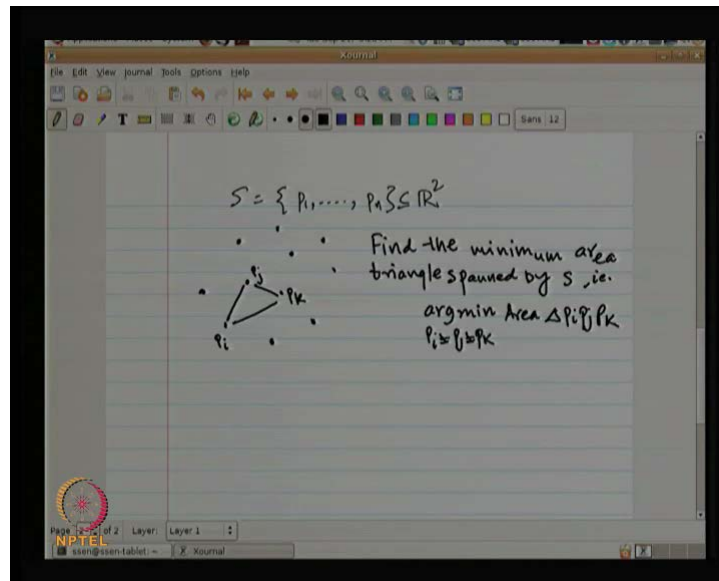 Xournal
File Edit View Journal Tools Options Help
Sans 12
S = { p₁, ...., pₙ} ⊆ ℝ²
Find the minimum area
triangle spanned by S, ie.
argmin Area Δ Pi Pj Pk
Pi ≠ Pj ≠ Pk
Pj
Pk
Pi
Page of 2 Layer: Layer 1
sen@ssen-tablet: ~ Xournal
NPTEL